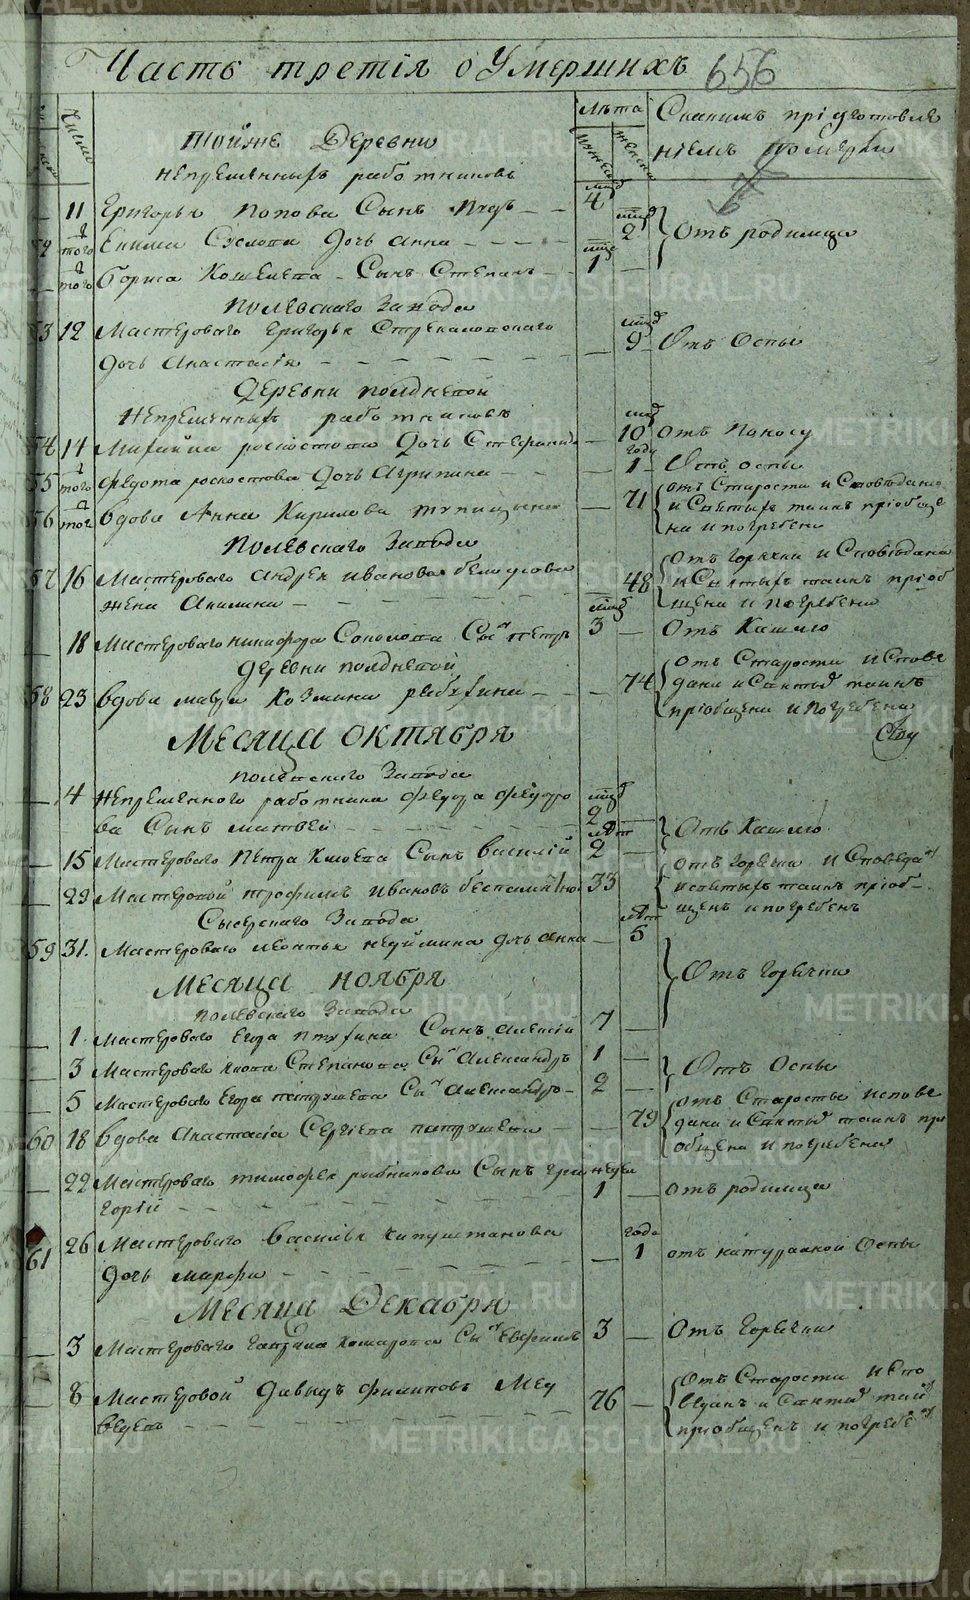 Часть третія о Умершихъ 656
Числа
Лѣта
мужеска
женска
Снакимъ пріуготовле
ніемъ померли
Тойже Деревни
непременныхъ работниковъ
11 Григорья Попова Сынъ
4
того Екима Суслова Дочь Анна
2
Отъ родимца
того Бориса Кошелева Сынъ Степанъ
1
Полевскаго Завода
53 12 Мастероваго Григорья Стрекаловскаго
дочь Анастасія
9 Отъ Оспы
Деревни полдневой
Непременныхъ работниковъ
54 14 Михайла Дочь Стефанида
10 Отъ Поносу
55 того Федота Дочь Агрипина
годъ
1 Отъ оспы
56 того вдова Анна Кирилова
71 отъ Старости и Сповѣдана
и Святыхъ таинъ пріобще
на и погребена
Полевскаго Завода
57 16 Мастероваго Андрея Иванова
жена Акилина
48 Отъ Горячки и Сповѣдана
и Святыхъ таинъ пріоб
щена и погребена
18 Мастероваго никифора Соколова Сынъ петръ
3 Отъ Кашлю
деревни полдневой
58 23 вдова мавра Козмина
74 отъ Старости и Спове
дана и Святыхъ таинъ
пріобщена и погребена
Месяца Октября
полевскаго Завода
4 непременного работника Федора Федоро
ва Сынъ матвей
2 Отъ Кашлю
15 Мастероваго Петра Сынъ василій
лѣт
2
29 Мастеровой трофимъ Ивановъ
33 отъ горячки и Споведа
и святыхъ таинъ пріоб
щенъ и погребенъ
Сысерскаго Завода
59 31. Мастероваго Леонтья неуймина дочь анна
лѣт
5 Отъ Горячки
Месяца ноября
полевскаго Завода
1. Мастероваго Егора Птухина Сынъ алексій
7
3 Мастероваго Якова Степанова Сынъ Александръ
1 Отъ Оспы
5 Мастероваго Егора патрушева Сынъ Александръ
2
60 18 вдова Анастасія Сергіева патрушева
79 отъ Старости испове
дана и Святыхъ таинъ прі
общена и погребена
22 Мастероваго тимофея рыбникова Сынъ Гри
горій
недели
1 отъ родимца
61 26 Мастероваго Василья Капустанова
дочь марфа
года
1 отъ натуралной Оспы
Месяца Декабря
3 Мастероваго Гаврила комарова Сынъ Ефимъ
3 Отъ Горячки
8 Мастеровой Давыдъ Филиповъ Мед
ведевъ
76 отъ Старости и Спо
веданъ и Святыхъ таинъ
пріобщенъ и погребенъ
METRIKI.GASO-URAL.RU